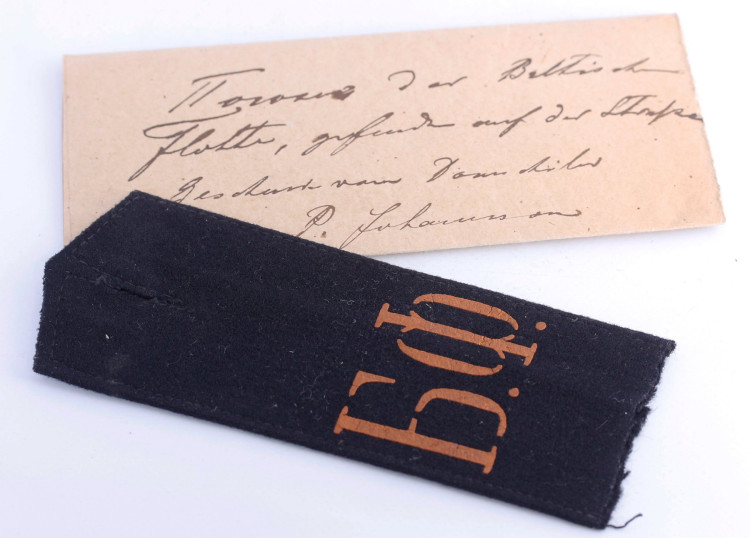 Погонъ der Baltischen
Flotte, gefunden auf der Strasse
Geschenk vom Domschüler
P. Johannson
Б.Ф.